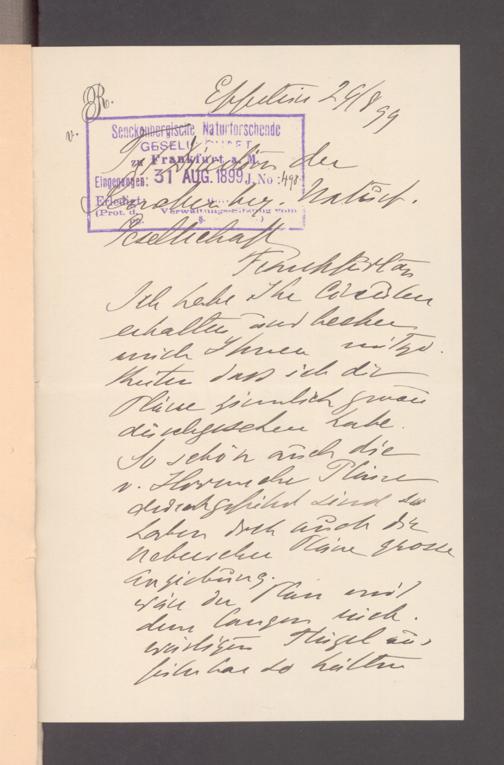 v. R.
Eppstein 29/8 99
Senckenbergische Naturforschende
GESELLSCHAFT
zu Frankfurt a. M.
Eingegangen: 31 AUG. 1899 J. No: 498
Erledigt
(Prot. d. Verwaltungs-Sitzung vom
der
Senckenberg. Naturf.
Gesellschaft
Frankfurt a/m
Ich habe Ihr Circular
erhalten und beehre
mich Ihnen mitzu
theilen dass ich die
Pläne ziemlich genau
durchgesehen habe.
So schön auch die
v. Hovenschen Pläne
durchgeführt sind so
haben doch auch die
Neherschen Pläne grosse
Anziehung.
Wäre der Plan mit
dem langen rück.
wärtigen Flügel aus
führbar so hätten